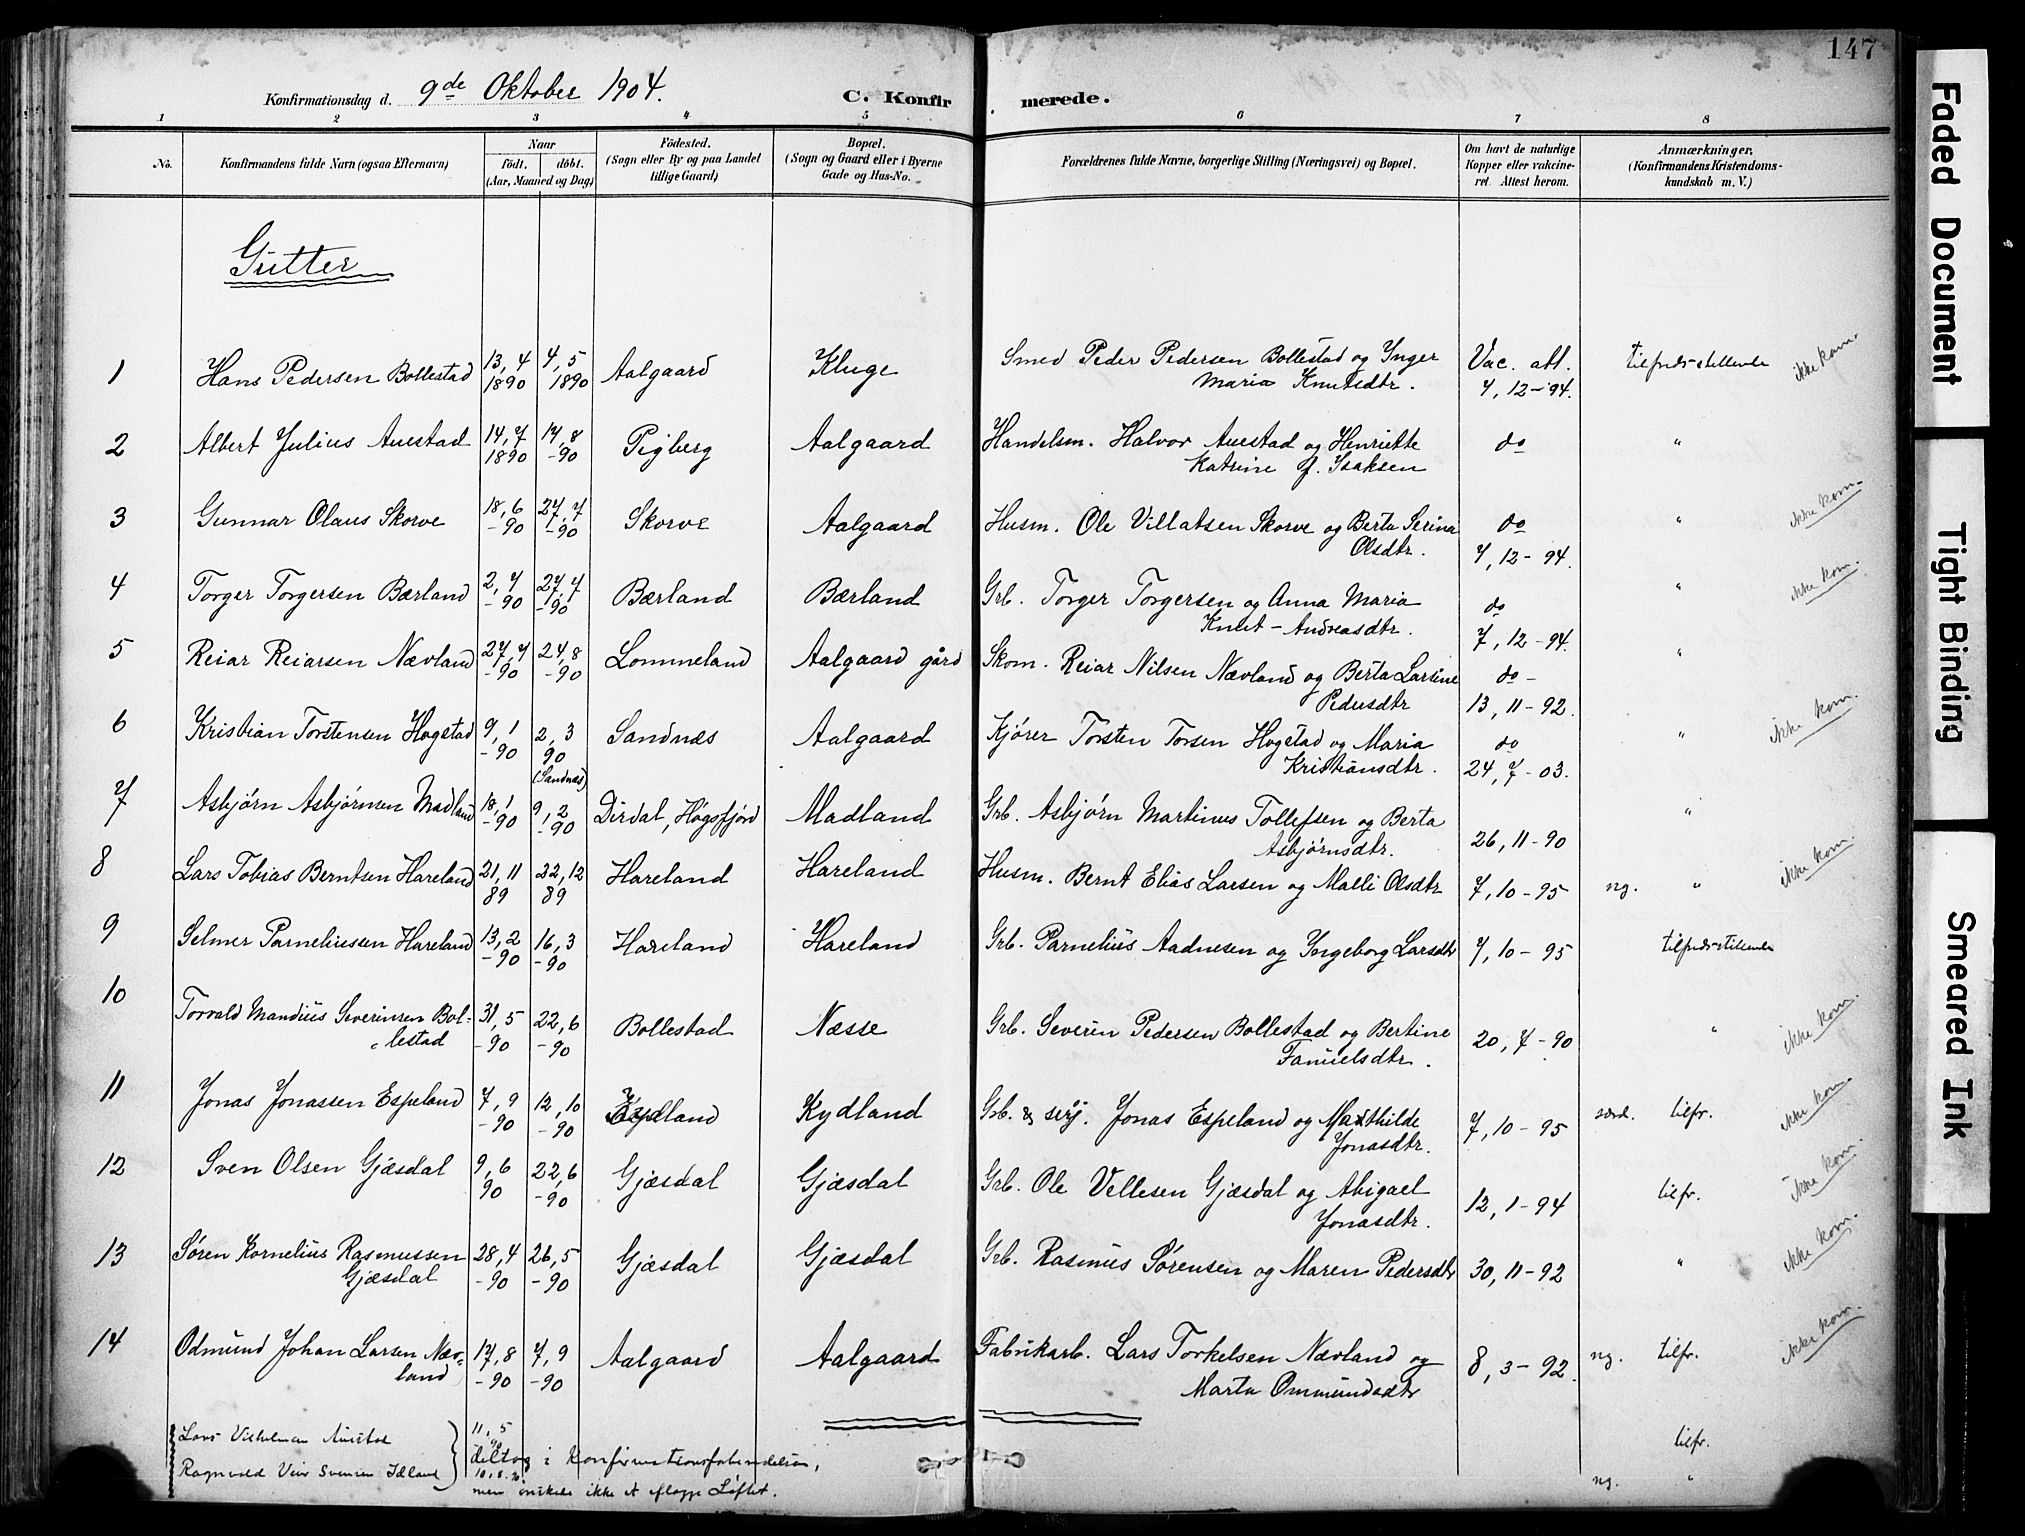 147
Konfirmationsdag d. 9de Oktober 1904.
C. Konfirmerede.
1 2 3 4 5 6 7 8
No.
Konfirmandens fulde Navn (ogsaa Efternavn)
Naar
født. døbt.
(Aar, Maaned og Dag)
Fødested.
(Sogn eller By og paa Landet
tillige Gaard)
Bopæl.
(Sogn og Gaard eller i Byerne
Gade og Hus-No.
Forældrenes fulde Navne, borgerlige Stilling (Næringsvei) og Bopæl.
Om havt de naturlige
Kopper eller vakcine-
ret. Attest herom.
Anmærkninger.
(Konfirmandens Kristendoms-
kundskab m. V.)
Gutter
1 Hans Pedersen Bollestad 13,4 1890 4,5 1890 Aalgaard Kluge Smed Peder Pedersen Bollestad og Inger Vac. att. tilfredsstillende ikke kom.
Maria Knutsdtr. 7,12-94.
2 Albert Julius Auestad 14,7 1890 17,8 -90 Pigberg Aalgaard Handelsm. Halvor Auestad og Henriette do "
Katrine f. Isaksen
3 Gunnar Olaus Skorve 18,6 -90 27,7 -90 Skorve Aalgaard Husm. Ole Villatsen Skorve og Berta Serina do " ikke kom.
Olsdtr. 7,12-94.
4 Torger Torgersen Bærland 2,7 -90 27,7 -90 Bærland Bærland Grb. Torger Torgersen og Anna Maria do " ikke kom.
Knut-Andreasdtr. 7,12-94.
5 Reiar Reiarsen Nævland 27,7 -90 24,8 -90 Lommeland Aalgaard gård Skom. Reiar Nilsen Nævland og Berta Larsine do - "
Pedersdtr 13,11-92.
6 Kristian Torstensen Hogstad 9,1 -90 2,3 90 (Sandnæs) Sandnæs Aalgaard Kjører Torsten Torsen Hogstad og Maria do " ikke kom.
Kristiansdtr. 24,7-03.
7 Asbjørn Asbjørnsen Madland 18,1 -90 9,2 -90 Dirdal, Høgsfjord Madland Grb. Asbjørn Martinus Tollefsen og Berta "
Asbjørnsdtr. 26,11-90
8 Lars Tobias Berntsen Hareland 21,11 89 22,12 89 Hareland Hareland Husm. Bernt Elias Larsen og Malli Olsdtr 7,10-95 ng. " ikke kom.
9 Selmer Parneliussen Hareland 13,2 -90 16,3 -90 Hareland Hareland Grb. Parnelius Aadnesen og Ingeborg Larsdtr 7,10-95 tilfredsstillende
10 Torvald Mandius Severinsen Bol- 31,5 -90 22,6 -90 Bollestad Næsse Grb. Severin Pedersen Bollestad og Bertine 20,7-90 " ikke kom.
lestad Fanuelsdtr.
11 Jonas Jonassen Espeland 7,9 -90 12,10 -90 Kydland Grb. & serj. Jonas Espeland og Mathilde 7,10-95 særd. tilfr. ikke kom.
Jonasdtr.
12 Sven Olsen Gjæsdal 9,6 90 22,6 -90 Gjæsdal Gjæsdal Grb. Ole Vellesen Gjæsdal og Abigael 12,1-94 tilfr. ikke kom.
Jonasdtr.
13 Søren Kornelius Rasmussen 28,4 -90 26,5 -90 Gjæsdal Gjæsdal Grb. Rasmus Sørensen og Maren Pedersdtr 30,11-92 " ikke kom.
Gjæsdal
14 Odmund Johan Larsen Næv- 17,8 -90 7,9 -90 Aalgaard Aalgaard Fabrikarb. Lars Torkelsen Nævland og 8,3-92. ng. tilfr. ikke kom.
land Marta Ommundsdtr
Lars Vilhelman Auestad 11,5 90 tilfr.
deltog i Konfirmationsforberedelsen,
Ragnvald Svensen Idland 10,8 ng. "
men ønskede ikke at aflægge Løftet.
Faded Document
Tight Binding
Smeared Ink